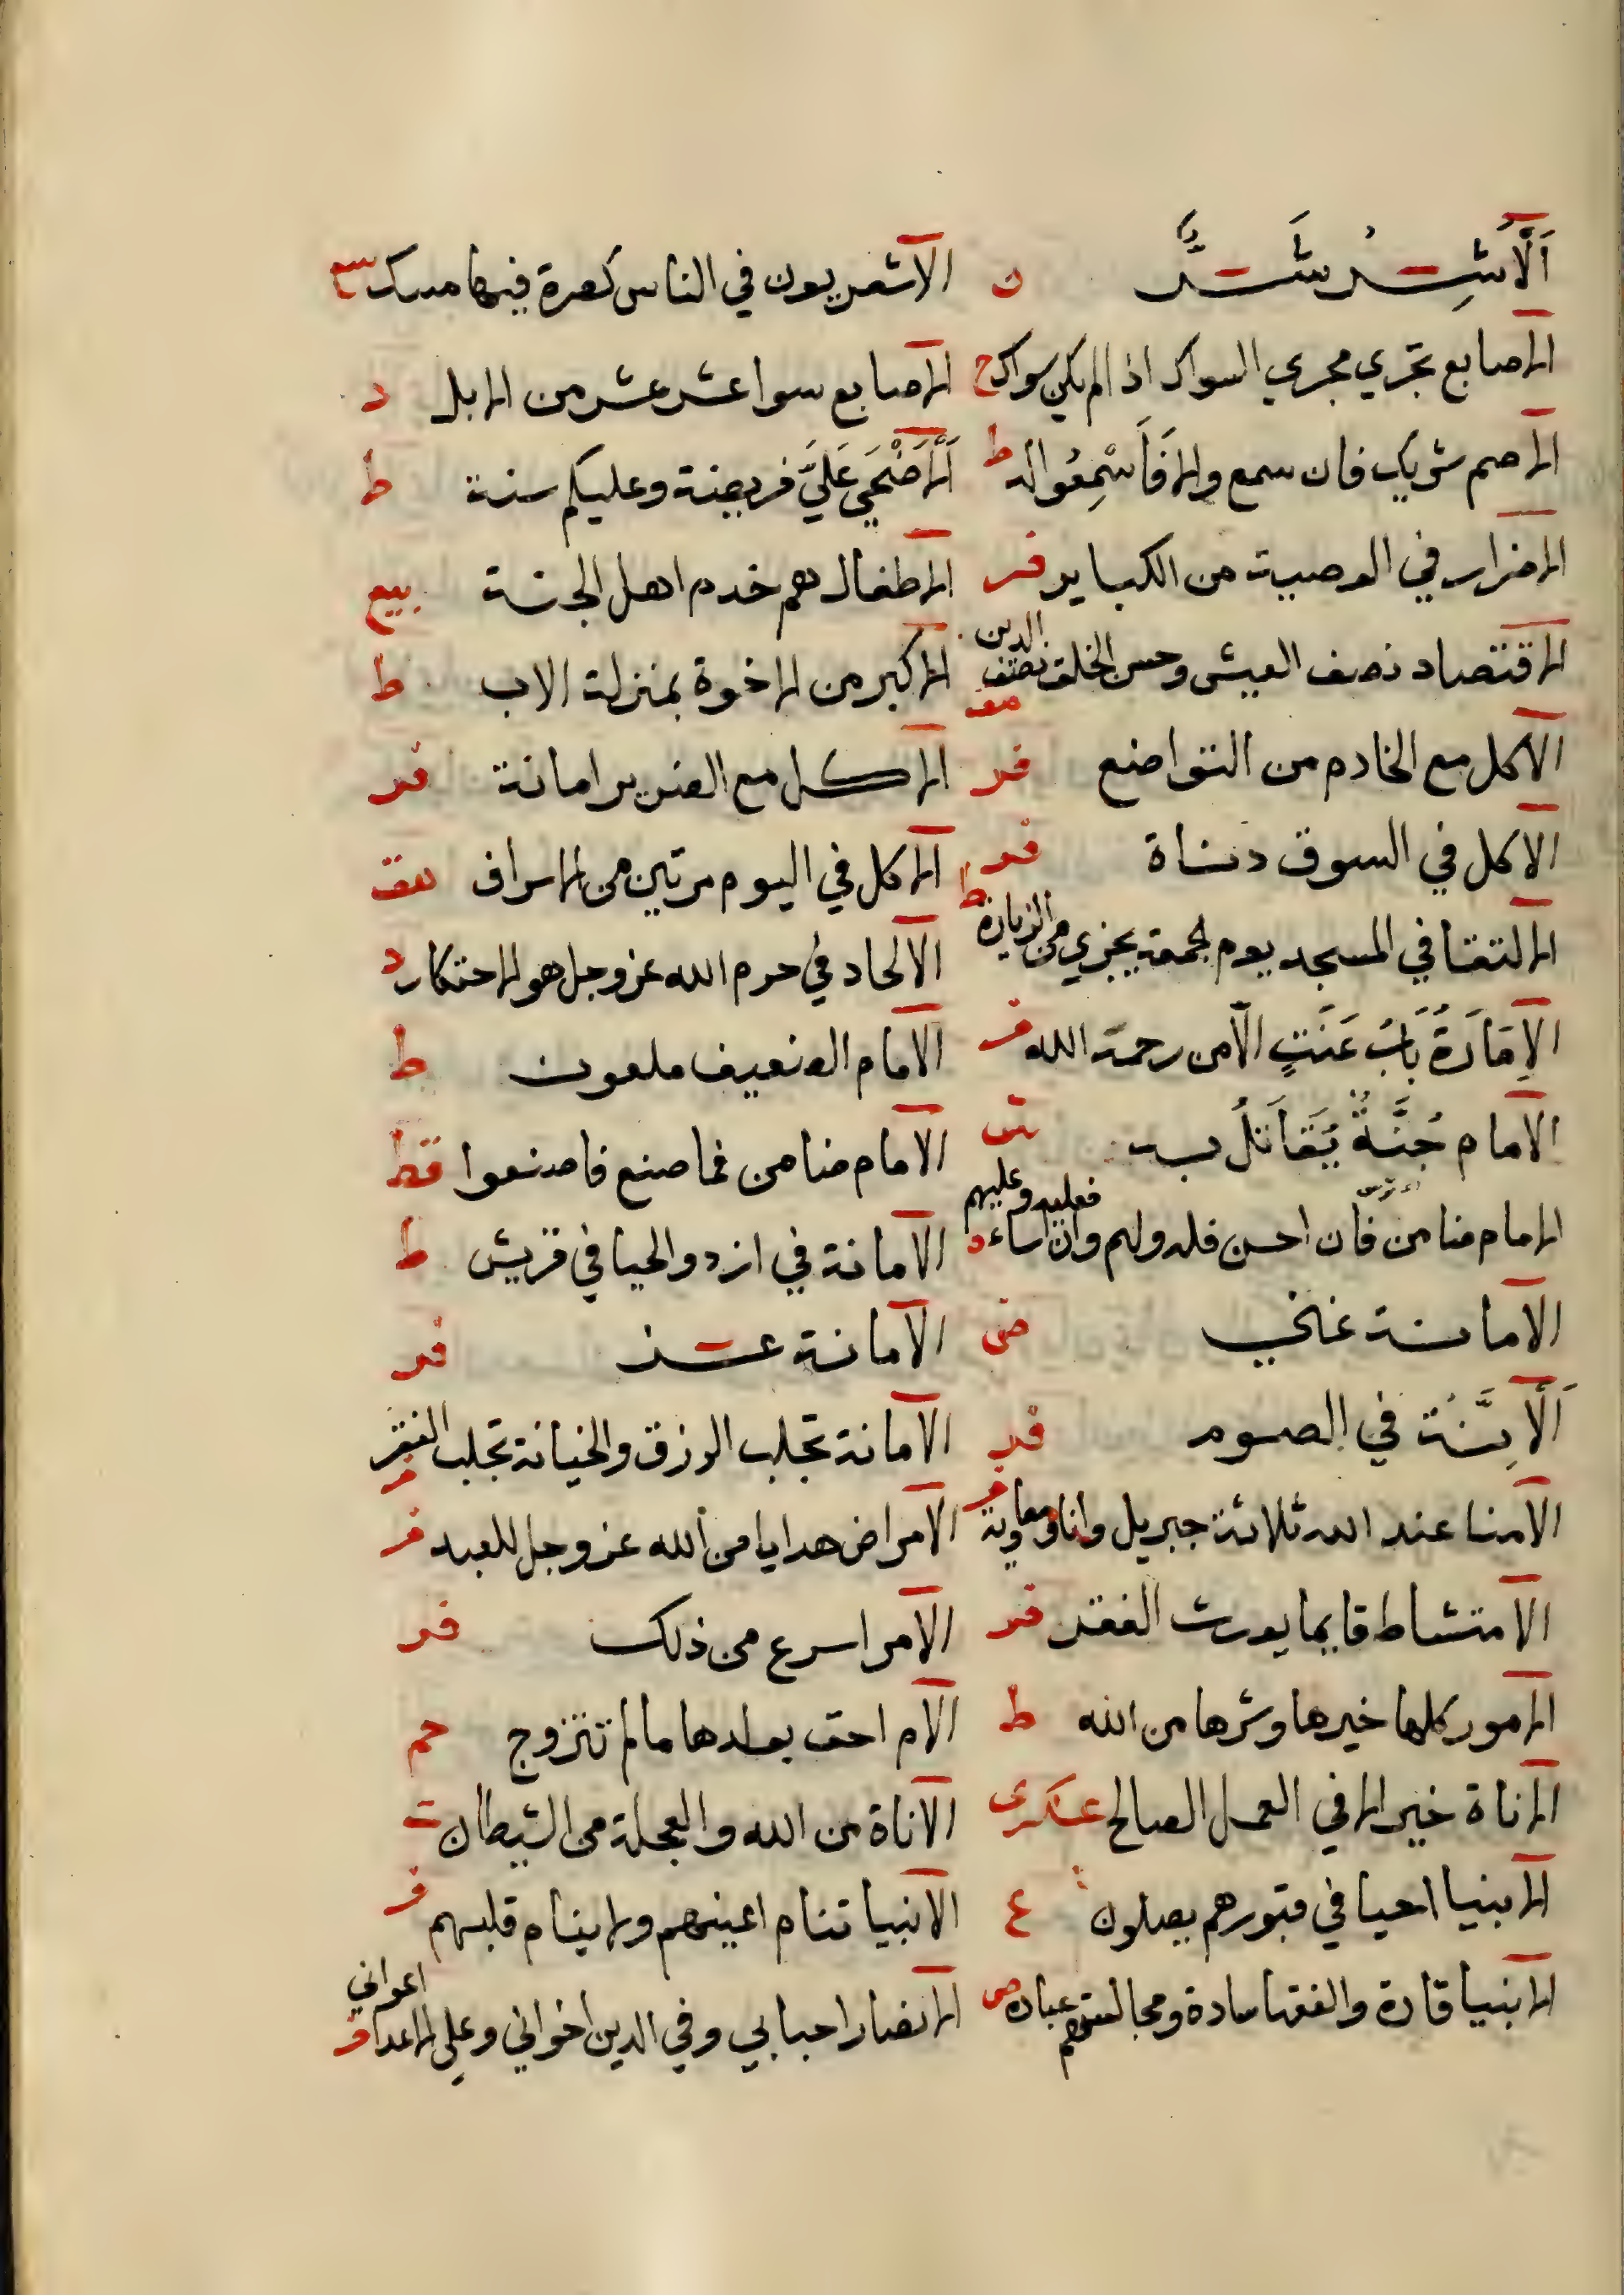 اَلْأَشِرُ شَرٌّ ن الاشعريون في الناس كصرة فيها مسك سع
الاصابع تجري مجري السواك اذا لم يكن سواك ح الاصابع سوا عشر عشر من الابل د
الاصم شريك فان سمع والا فَاَسْمِعُوا له ط اَلْاَضْحَي عَلَيَّ فريضة وعليكم سنة ط
الاضرار في الوصية من الكباير فر الاطفال هم خدم اهل الجنة بيع
الاقتصاد نصف العيش وحسن الخلق نصف الدين الاكبر من الاخوة بمنزلة الاب ط
الاكل مع الخادم من التواضع فر الاكل مع الفقير امانة فر
الاكل في السوق دناة فر الاكل في اليوم مرتين من الاسراف هق
الالتقا في المسجد يوم الجمعة يجزي من الزيارة ط الالحاد في حرم الله عز وجل هو الاحتكار د
الاِمَارَةُ بَابُ عَنَتٍ الا من رحمة الله فر الامام الضعيف ملعون ط
الامام جُنَّةٌ يُقَاتَلُ به الامام ضامن فما صنع فاصنعوا قط
الامام ضامن فان احسن فله ولهم وان اساء فعليه وعليهم ه الامانة في ازد والحيا في قريش ط
الامانة غني ض الامانة عز فر
الامانة في الصوم فر الامانة تجلب الرزق والخيانة تجلب الفقر فر
الامنا عند الله ثلاثة جبريل وانا ومعاوية فر الامراض هدايا من الله عز وجل للعبد فر
الامتشاط قايما يورث الفقر فر الامر اسرع من ذلك فر
الامور كلها خيرها وشرها من الله ط الام احق بولدها ما لم تتزوج حم
الاناة خير الا في العمل الصالح عسكري الاناة من الله والعجلة من الشيطان ت
الانبيا احيا في قبورهم يصلون ع الانبيا تنام اعينهم ولا ينام قلبهم فر
الانبيا قادة والفقها سادة ومجالستهم عبادة ض الانصار احبابي وفي الدين اخواني وعلي الاعدا اعواني فر